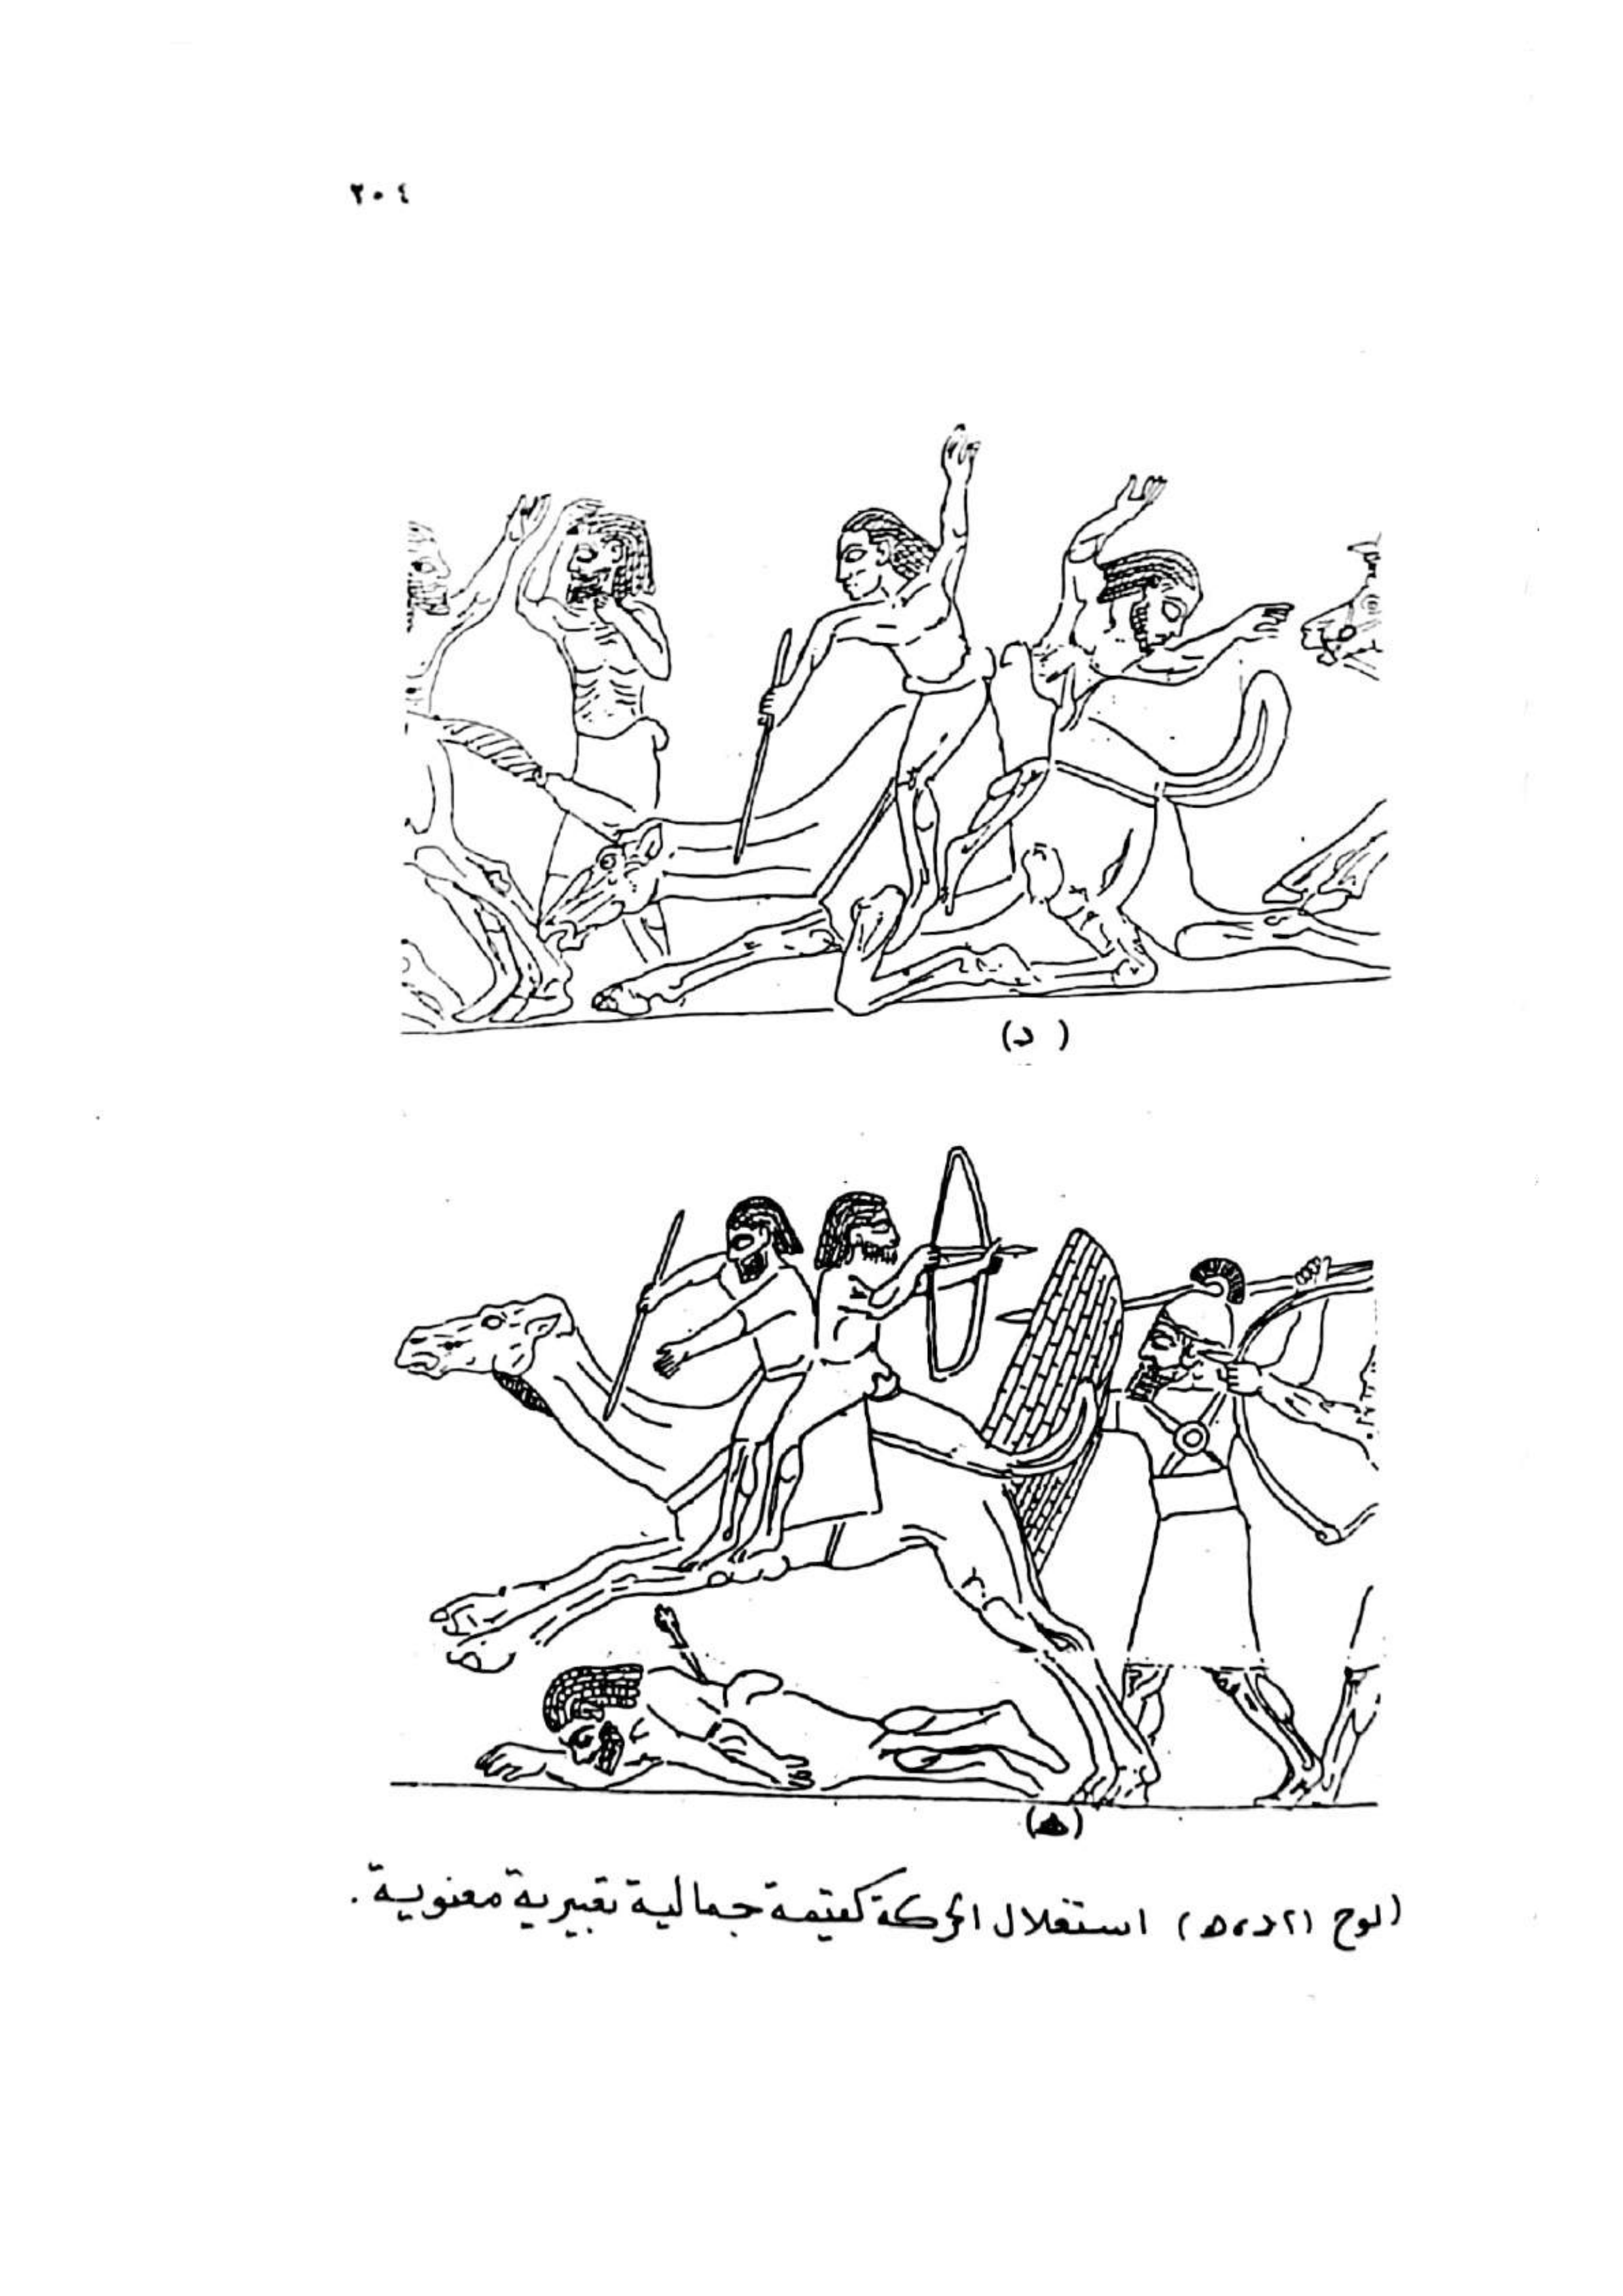 ٢٠٤
(د)
(هـ)
(لوح ٢١ د،هـ) استغلال الحركة كقيمة جمالية تعبيرية معنوية.